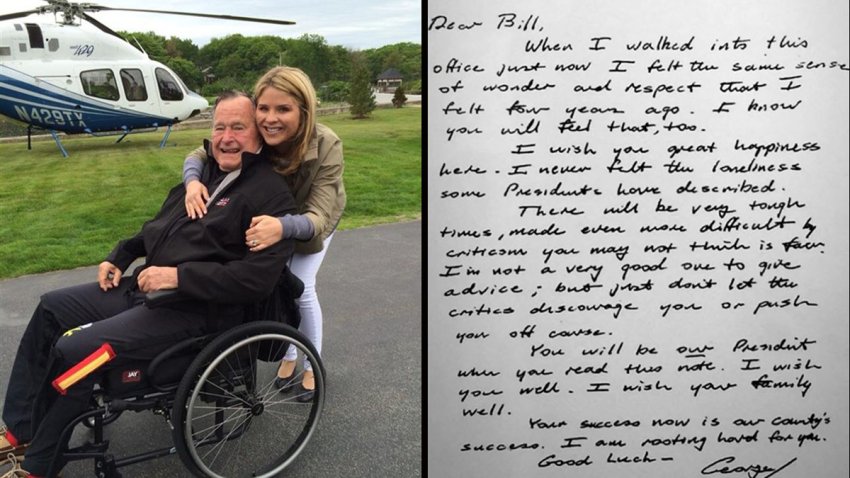 N429TX
429
JAY
Dear Bill,
When I walked into this
office just now I felt the same sense
of wonder and respect that I
felt four years ago. I know
you will feel that, too.
I wish you great happiness
here. I never felt the loneliness
some Presidents have described.
There will be very tough
times, made even more difficult by
criticism you may not think is fair.
I'm not a very good one to give
advice; but just don't let the
critics discourage you or push
you off course.
You will be our President
when you read this note. I wish
you well. I wish your family
well.
Your success now is our county's
success. I am rooting hard for you.
Good Luck —
George